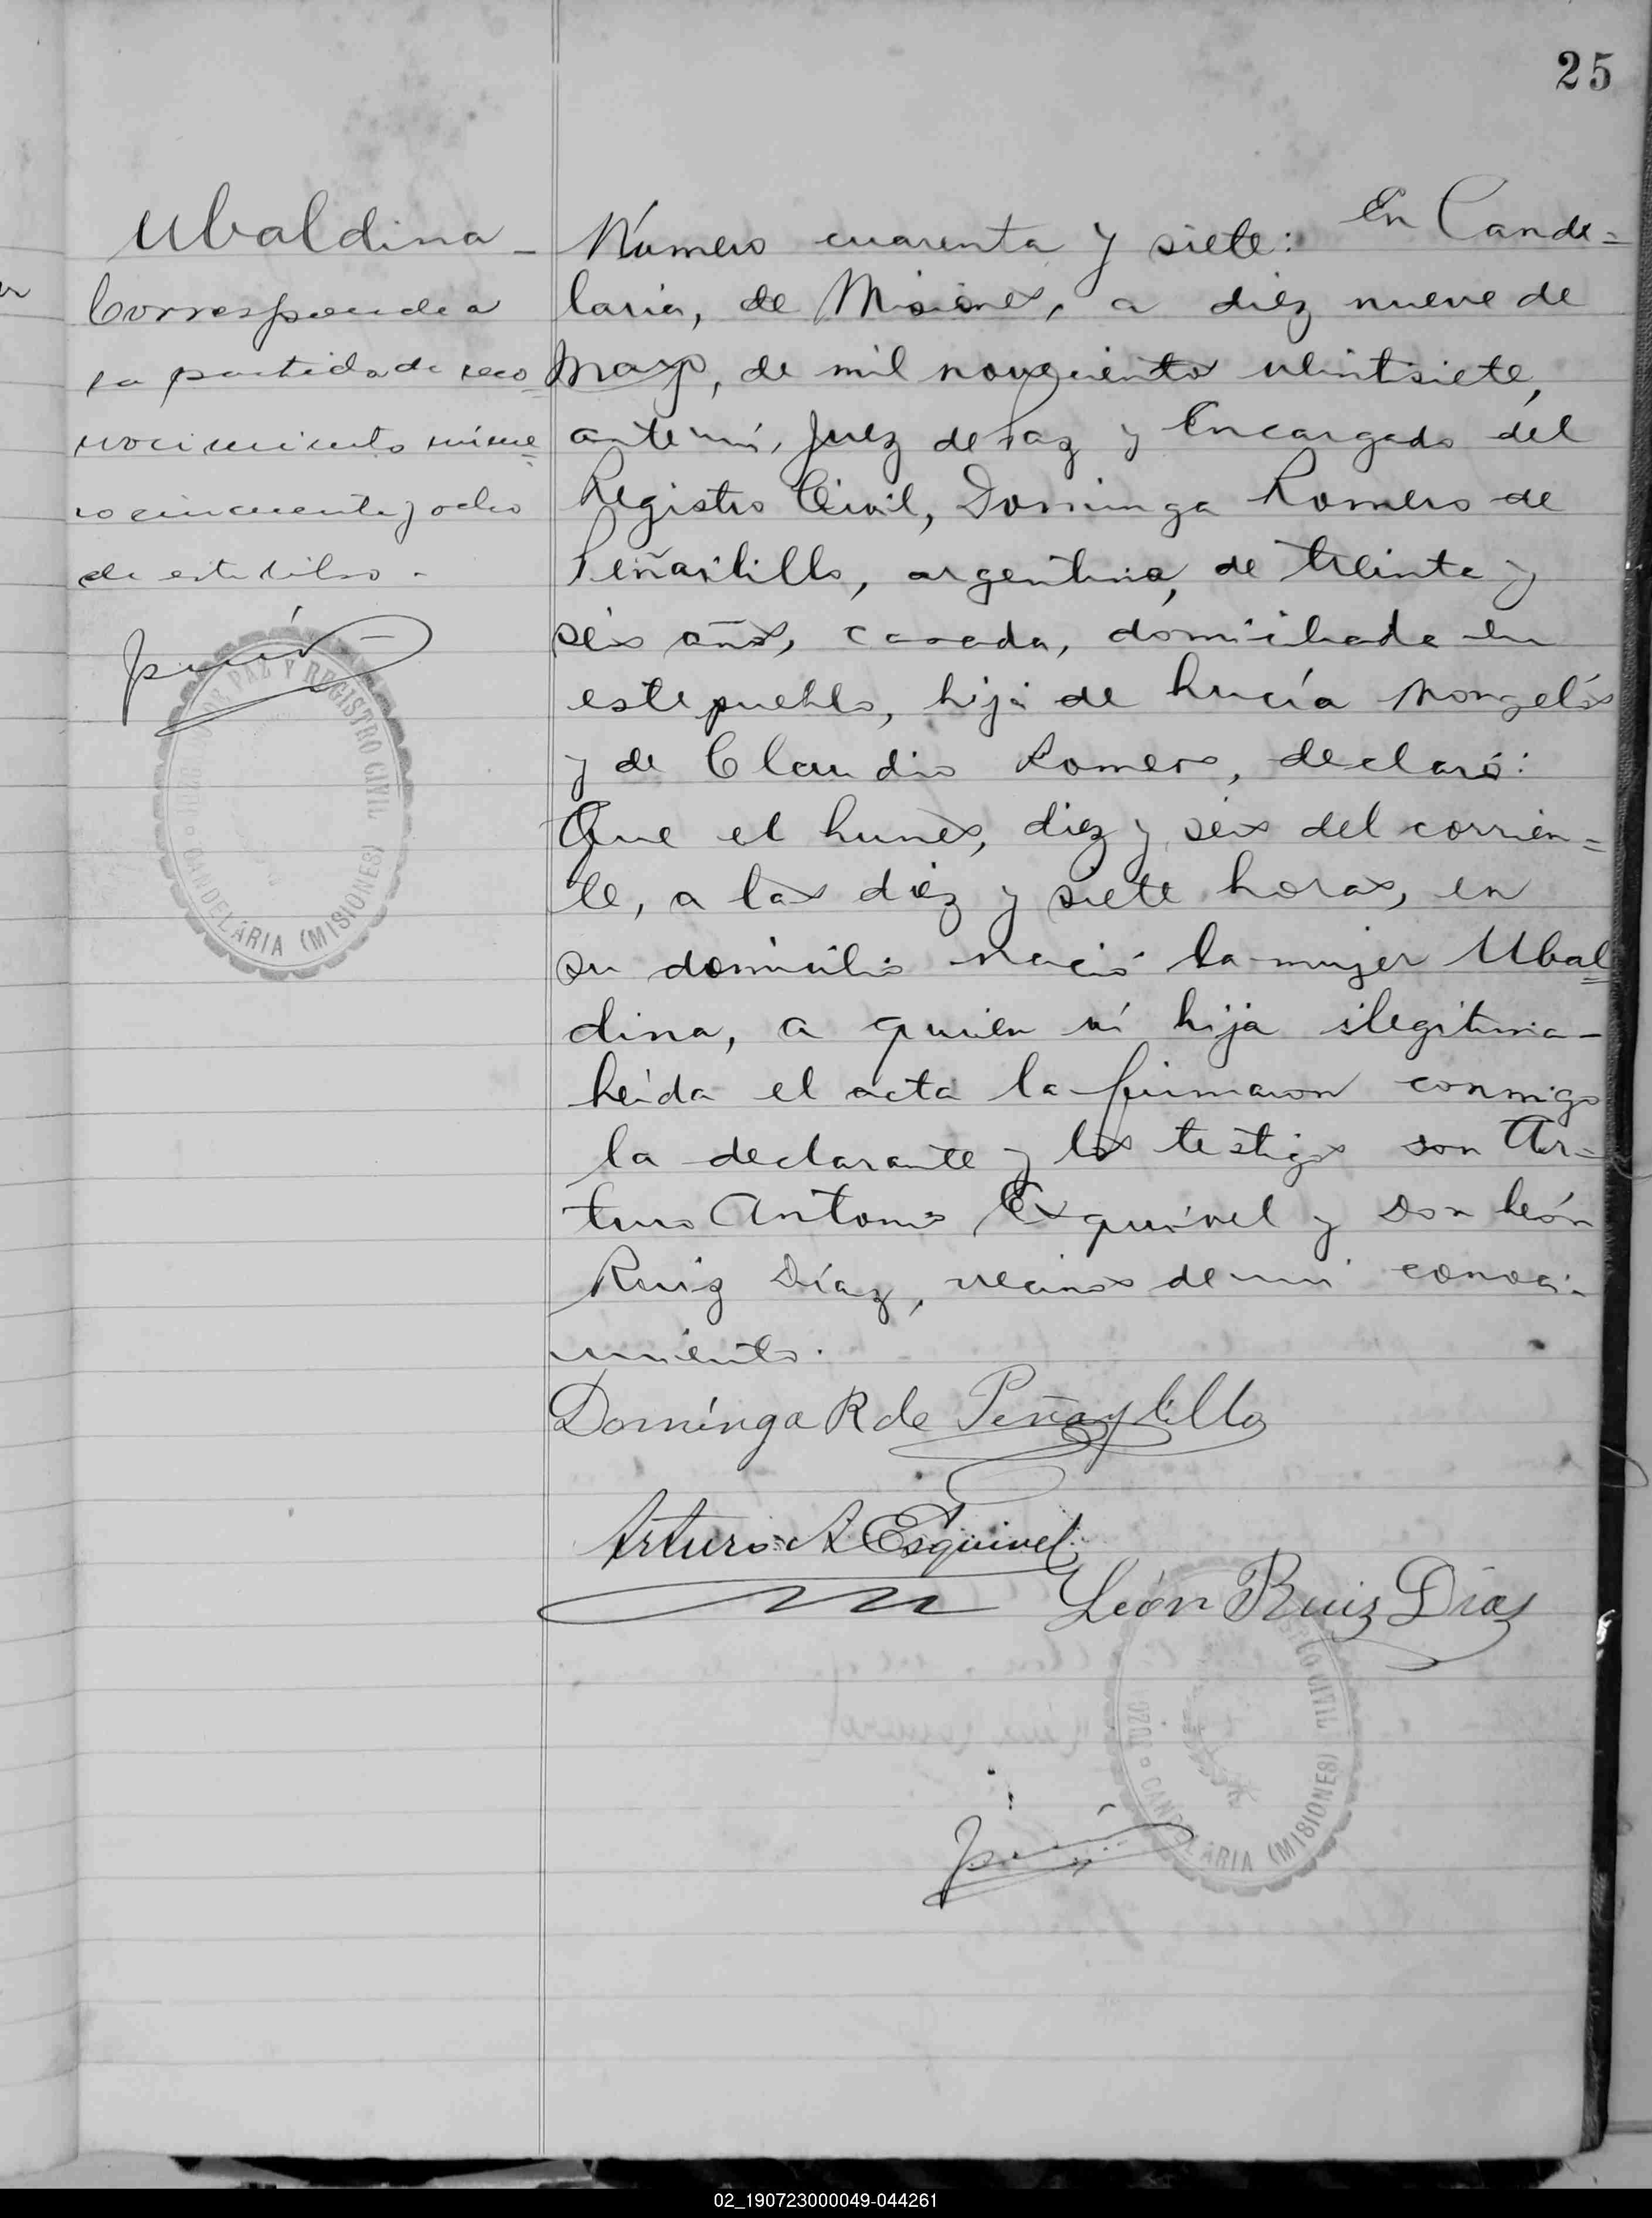 25
Ubaldina -
Corresponde a
la partida de reco=
nocimiento núme=
ro cincuenta y ocho
de este libro -
JUZGADO DE PAZ Y REGISTRO CIVIL
CANDELARIA (MISIONES)
Número cuarenta y siete: En Cande=
laria, de Misiones, a diez nueve de
Mayo, de mil novecientos veintisiete,
ante mí, Juez de Paz y Encargado del
Registro Civil, Dominga Romero de
Peñaililla, argentina, de treinta y
seis años, casada, domiciliada en
este pueblo, hija de Lucía Mongelós
y de Claudio Romero, declaró:
Que el Lunes, diez y seis del corrien=
te, a las diez y siete horas, en
su domicilio nació la mujer Ubal=
dina, a quien ví hija ilegitima -
Leída el acta la firmaron conmigo
la declarante y los testigos son Ar=
turo Antonio Esquivel y Don León
Ruiz Díaz, vecinos de mi conoci-
miento.
Dominga R de Peñaylillo
Arturo A Esquivel
León Ruiz Díaz
JUZG STRO CIVIL
CANDELARIA (MISIONES)
02_190723000049-044261